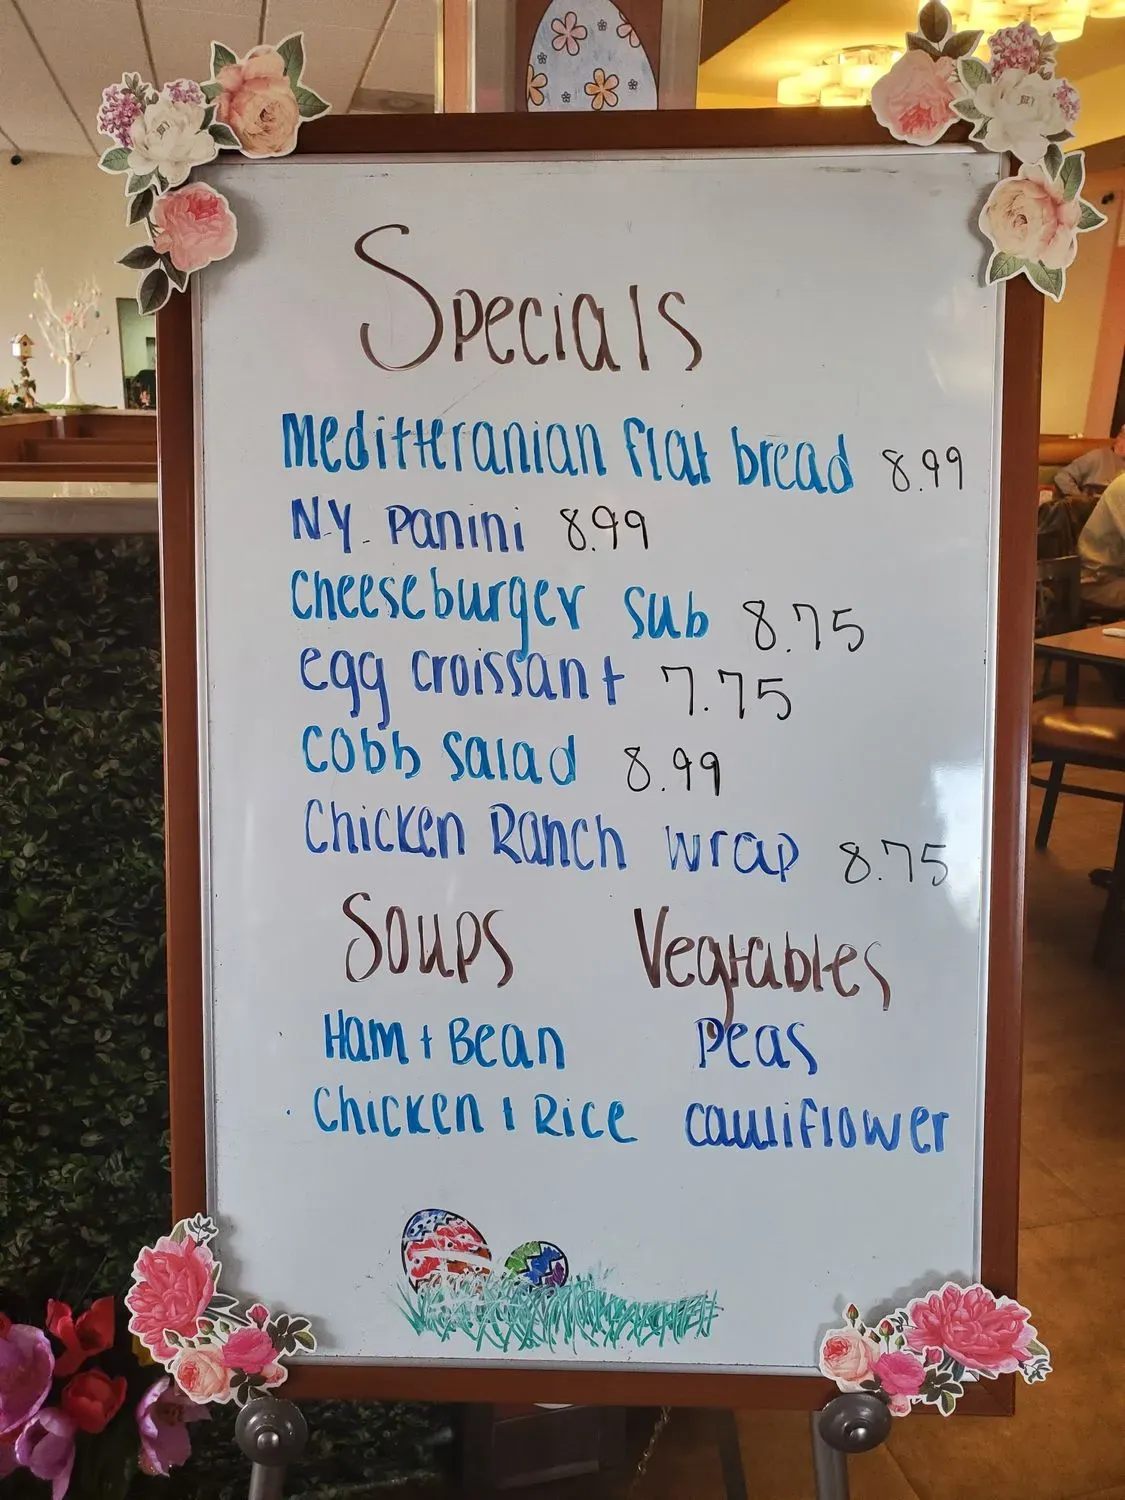 Specials
Meditteranian flat bread 8.99
N.Y. Panini 8.99
Cheeseburger sub 8.75
egg croissant 7.75
Cobb salad 8.99
Chicken Ranch wrap 8.75
Soups Vegtables
Ham + Bean Peas
Chicken + Rice cauliflower